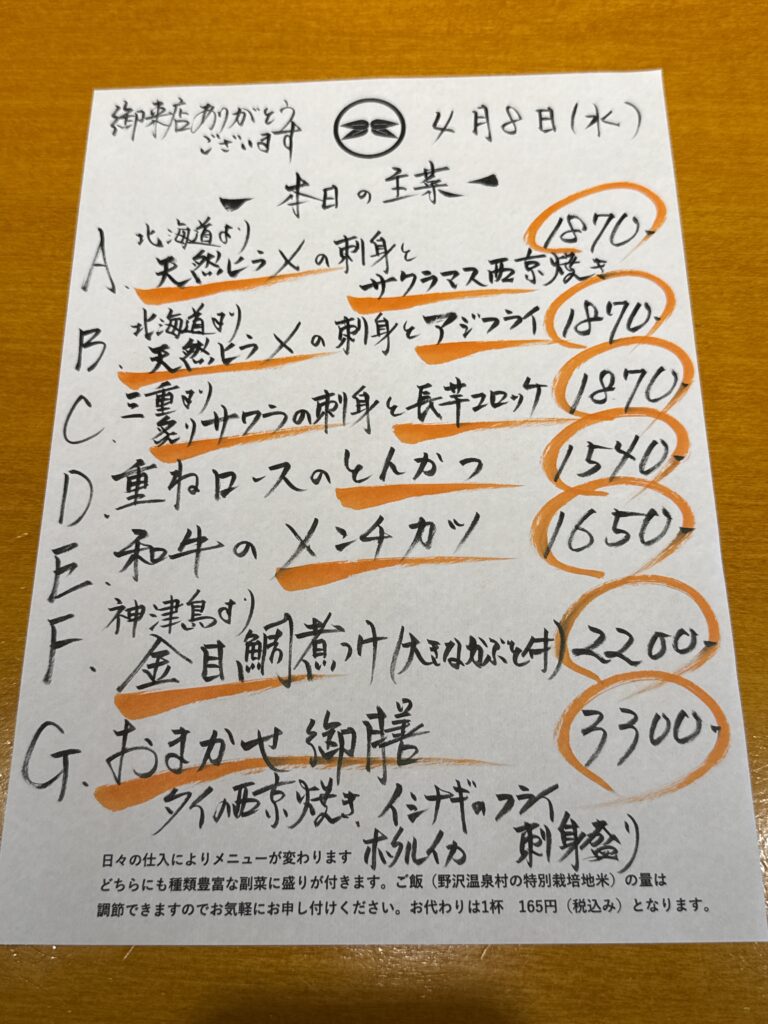 御来店ありがとう
ございます
4月8日(水)
本日の主菜
A. 北海道より
天然ヒラメの刺身と
サクラマス西京焼き
1870-
B. 北海道より
天然ヒラメの刺身とアジフライ 1870-
C. 三重より
炙りサワラの刺身と長芋コロッケ 1870-
D. 重ねロースのとんかつ 1540-
E. 和牛のメンチカツ 1650-
F. 神津島より
金目鯛煮つけ(大きなかぶと付) 2200-
G. おまかせ御膳 3300-
タイの西京焼き、イシナギのフライ
ホタルイカ 刺身盛り
日々の仕入によりメニューが変わります
どちらにも種類豊富な副菜に盛りが付きます。ご飯(野沢温泉村の特別栽培地米)の量は
調節できますのでお気軽にお申し付けください。お代わりは1杯 165円(税込み)となります。